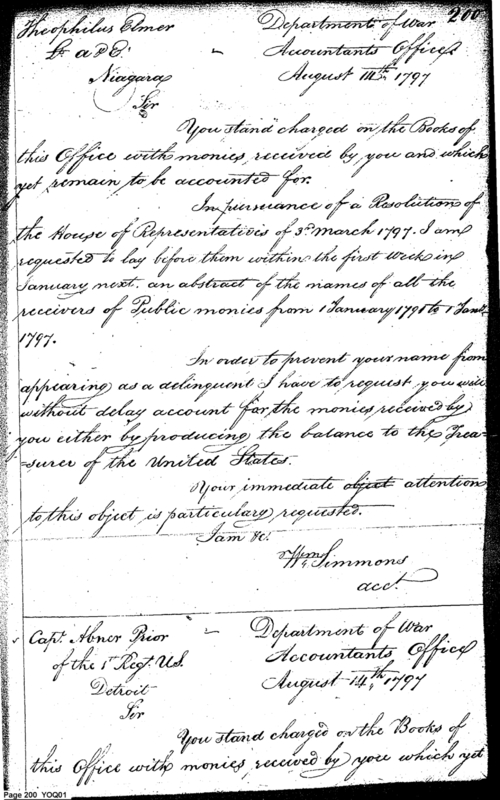 200
Theophilus Elmer - Department of War
Lt a & E. Accountants Office
Niagara August 14th 1797
Sir
You stand charged on the Books of
this Office with monies received by you and which
yet remain to be accounted for.
In pursuance of a Resolution of
the House of Representatives of 3d March 1797. I am
requested to lay before them within the first Week in
January next. an abstract of the names of all the
receivers of Public monies from 1 January 1791 to 1 Jany
1797.
In order to prevent your name from
appearing as a delinquent I have to request you will
without delay account for the monies received by
you either by producing the balance to the Trea-
-surer of the United States.
Your immediate object attention
to this object is particulary requested.
I am &c.
Wm Simmons
acct.
Capt. Abner Prior - Department of War
of the 1st Regt. U.S. Accountants Office
Detroit August 14th, 1797
Sir
You stand charged on the Books of
this Office with monies received by you which yet
Page 200 YOQ01